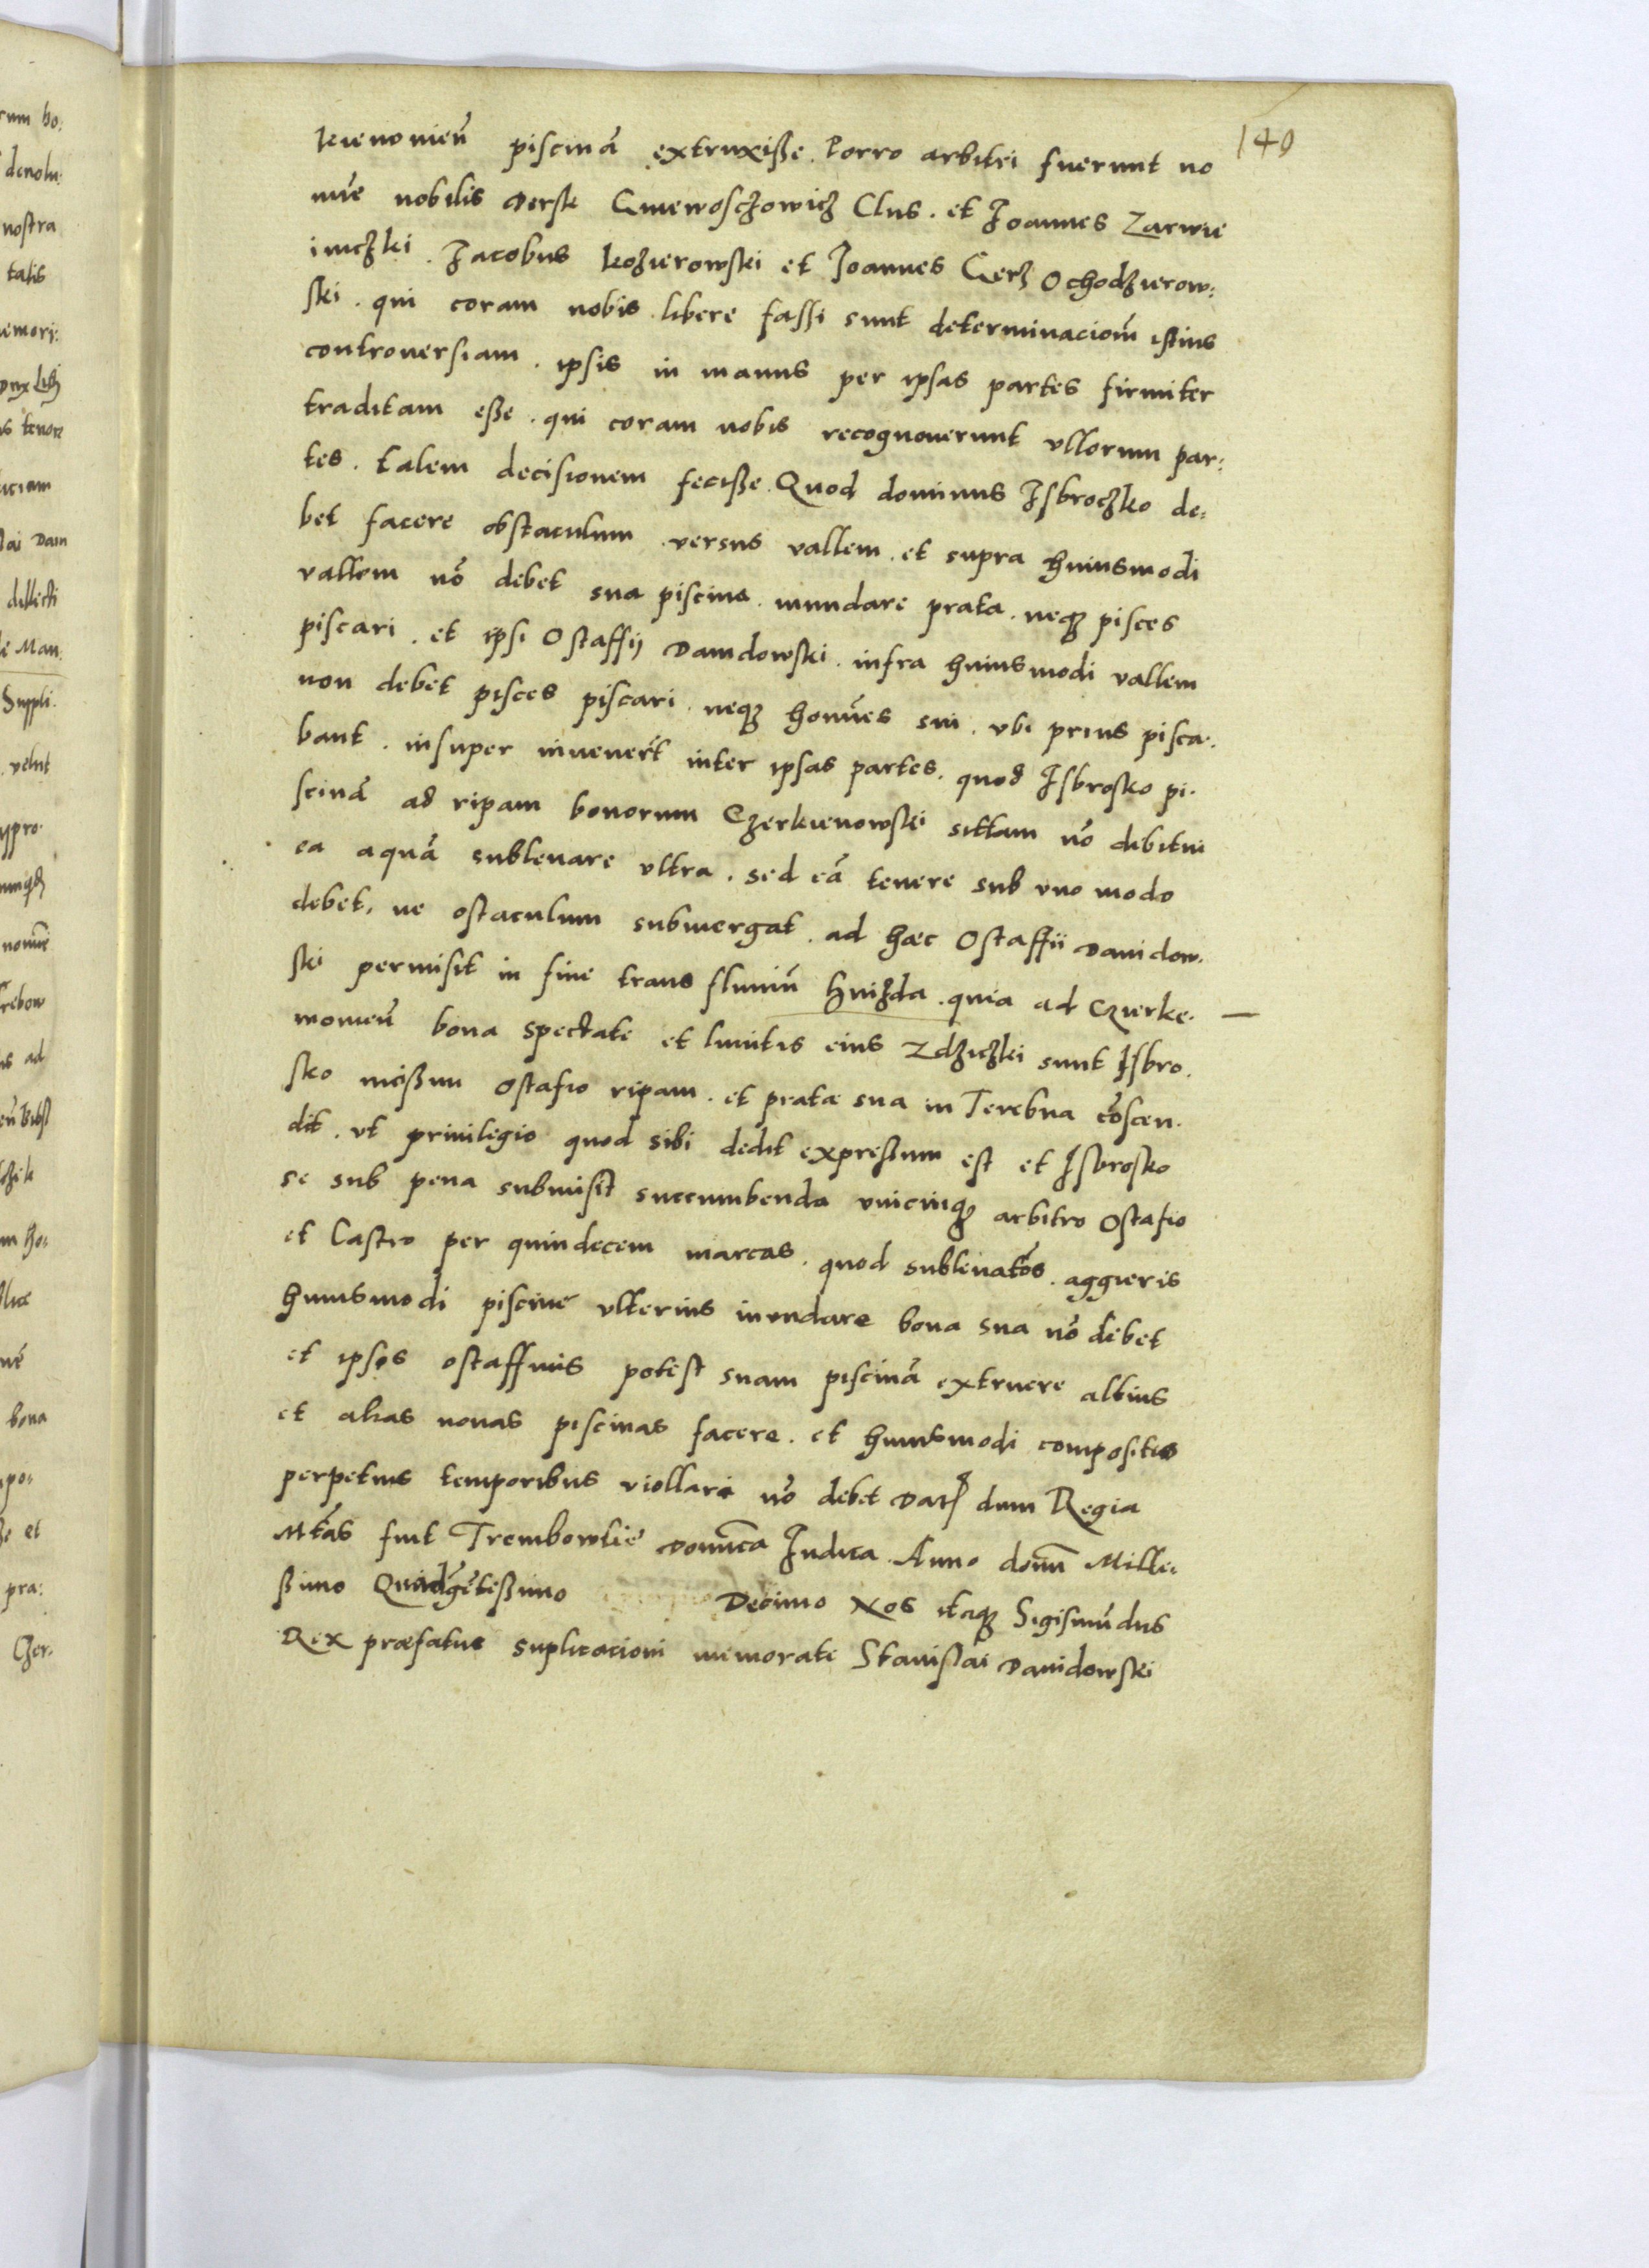 149
kienovien̄ piscinā extruxisse. Porro arbitri fuerunt no
mīe nobilis Dersk Gniewoschowicz Clus. et Joannes Zarwie
inczki. Jacobus Kozierowski et Joannes Gerz Ochodzierow:
ski. qui coram nobis libere fassi sunt determinaciom̄ istius
controversiam. ipsis in manus per ipsas partes firmiter
traditam esse. qui coram nobis recognoverunt ullorum par:
tes. talem decisionem fecisse. Quod dominus Isbroczko de:
bet facere obstaculum versus vallem. et supra huiusmodi
vallem nō debet sua piscina. inundare prata. neq3 pisces
piscari. et ipsi Ostaffij Davidowski. infra huiusmodi vallem
non debet pisces piscari. neq3 homīes sui. ubi prius pisca.
bant. insuper invenert̄ inter ipsas partes. quod Isbrosko pi.
scinā ad ripam bonorum Czerkienowski sittam nō debitui
ea aquā sublevare ultra. sed eā tenere sub uno modo
debet. ne ostaculum submergat. ad haec Ostaffii Davidow.
ski permisit in fine trans flumin̄ Hnizda. quia ad Czierke. —
wonien̄ bona spectate et limitis eius Zdziczki sunt Isbro.
sko incissim Ostafio ripam. et prata sua in Terebna cōscen.
dit. ut privilegio quod sibi dedit expressum est et Isbrosko
se sub pena submisit succumbenda unicuiq3 arbitro Ostafio
et Castro per quindecem marcas. quod sublevatōs. aggieris
huiusmodi piscine ulterius inundare bona sua nō debet
et ipsos ostaffius potest suam piscinā extruere altius
et alias novas piscinas facere. et huiusmodi compositio
perpetuis temporibus viollari nō debet Dat̄ dum Regia
Mtās fuit Trembowlie Domīca Judica. Anno domī Mille.
ssimo Quadgētessimo Decimo Nos itaq3 Sigismūdus
Rex praefatus suplicacioni memorate Stanislai Davidowski